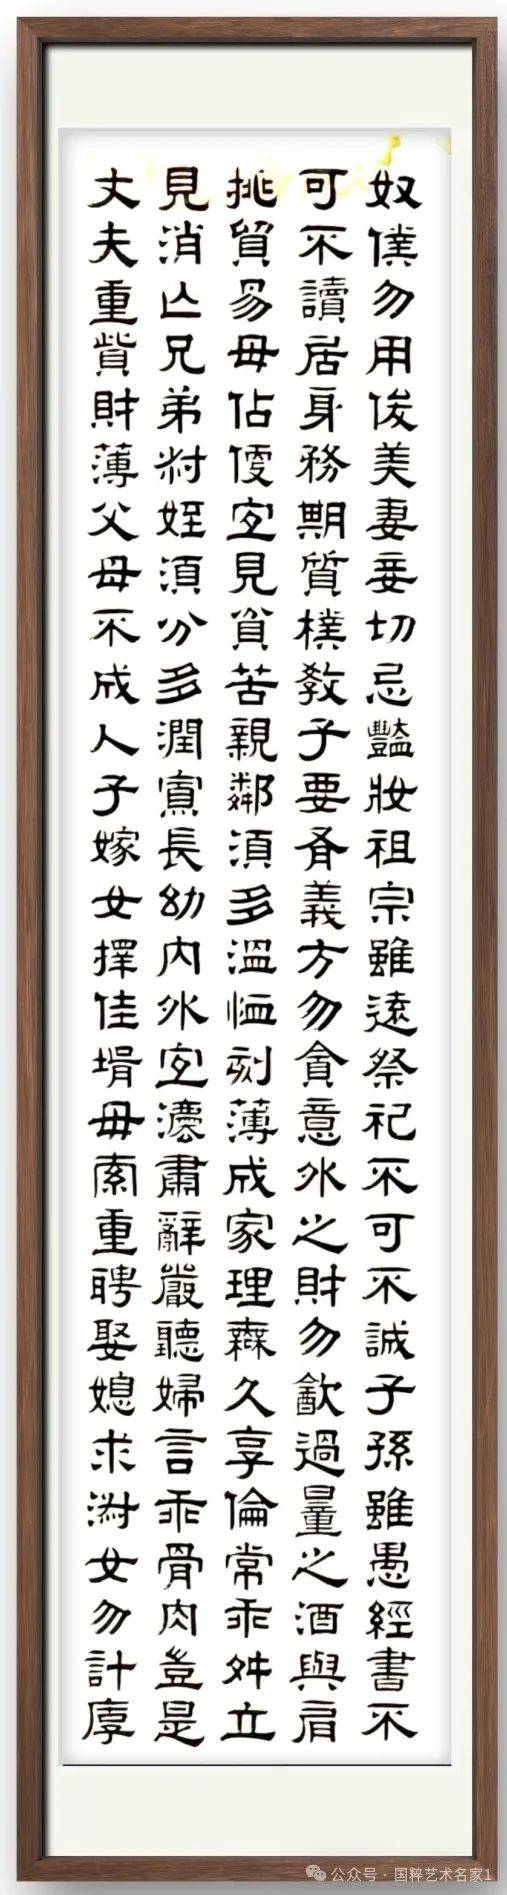 奴僕勿用俊美妻妾切忌豔妝祖宗雖遠祭祀不可不誠子孫雖愚經書不
可不讀居身務期質樸教子要有義方勿貪意外之財勿飲過量之酒與肩
挑貿易毋佔便宜見貧苦親鄰須多溫恤刻薄成家理無久享倫常乖舛立
見消亡兄弟叔姪須分多潤寡長幼內外宜灋肅辭嚴聽婦言乖骨肉豈是
丈夫重貲財薄父母不成人子嫁女擇佳壻毋索重聘娶媳求淑女勿計厚
公众号·国粹艺术名家1